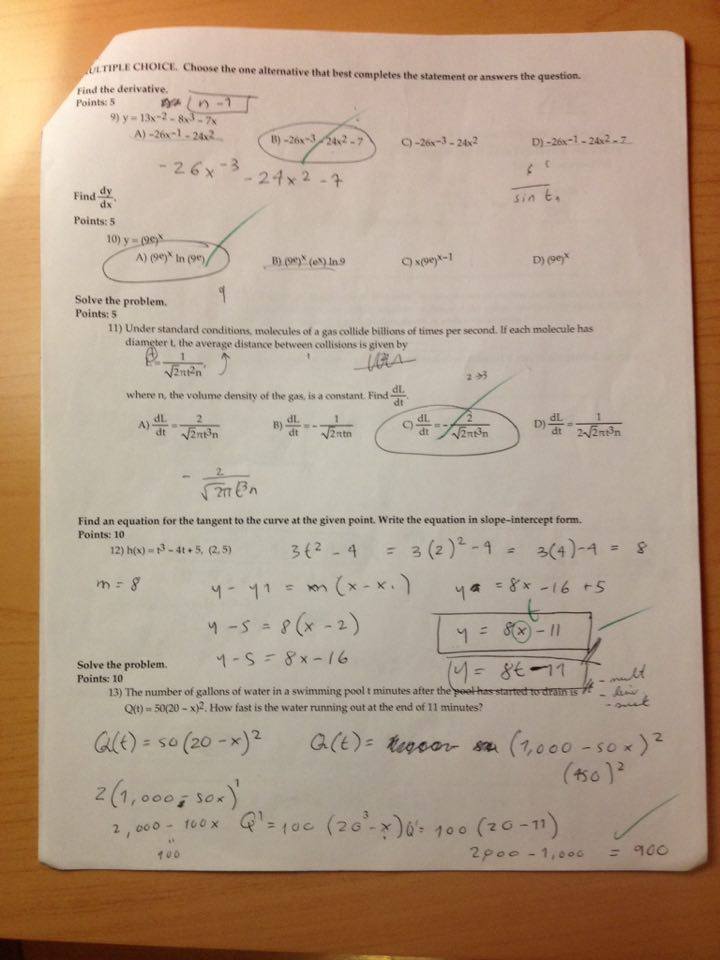 ULTIPLE CHOICE. Choose the one alternative that best completes the statement or answers the question.
Find the derivative.
Points: 5
n - 1
9) y = 13x⁻² - 8x³ - 7x
A) -26x⁻¹ - 24x² B) -26x⁻³ - 24x² - 7 C) -26x⁻³ - 24x² D) -26x⁻¹ - 24x² - 7
-26x⁻³ - 24x² - 7
sin t
Find dy/dx.
Points: 5
10) y = (9e)ˣ
A) (9e)ˣ ln (9e) B) (9e)ˣ (eˣ) ln 9 C) x(9e)ˣ⁻¹ D) (9e)ˣ
9
Solve the problem.
Points: 5
11) Under standard conditions, molecules of a gas collide billions of times per second. If each molecule has
diameter t, the average distance between collisions is given by
L = 1/(√2πt²n),
2 → 3
where n, the volume density of the gas, is a constant. Find dL/dt.
A) dL/dt = 2/(√2πt³n) B) dL/dt = - 1/(√2πtn) C) dL/dt = - 2/(√2πt³n) D) dL/dt = 1/(2√2πt³n)
- 2/(√2πt³n)
Find an equation for the tangent to the curve at the given point. Write the equation in slope-intercept form.
Points: 10
12) h(x) = t³ - 4t + 5, (2, 5) 3t² - 4 = 3(2)² - 4 = 3(4) - 4 = 8
m = 8 y - y1 = m(x - x1) y = 8x - 16 + 5
t
y - 5 = 8(x - 2) y = 8x - 11
y - 5 = 8x - 16 y = 8t - 11
Solve the problem.
Points: 10
- mult
13) The number of gallons of water in a swimming pool t minutes after the pool has started to drain is
Q(t) = 50(20 - x)². How fast is the water running out at the end of 11 minutes?
Q(t) = 50(20 - x)² Q(t) = (1,000 - 50x)²
(450)²
2(1,000 - 50x)¹
2,000 - 100x Q' = 100 (20 - x) Q' = 100 (20 - 11)
100 2000 - 1,000 = 900